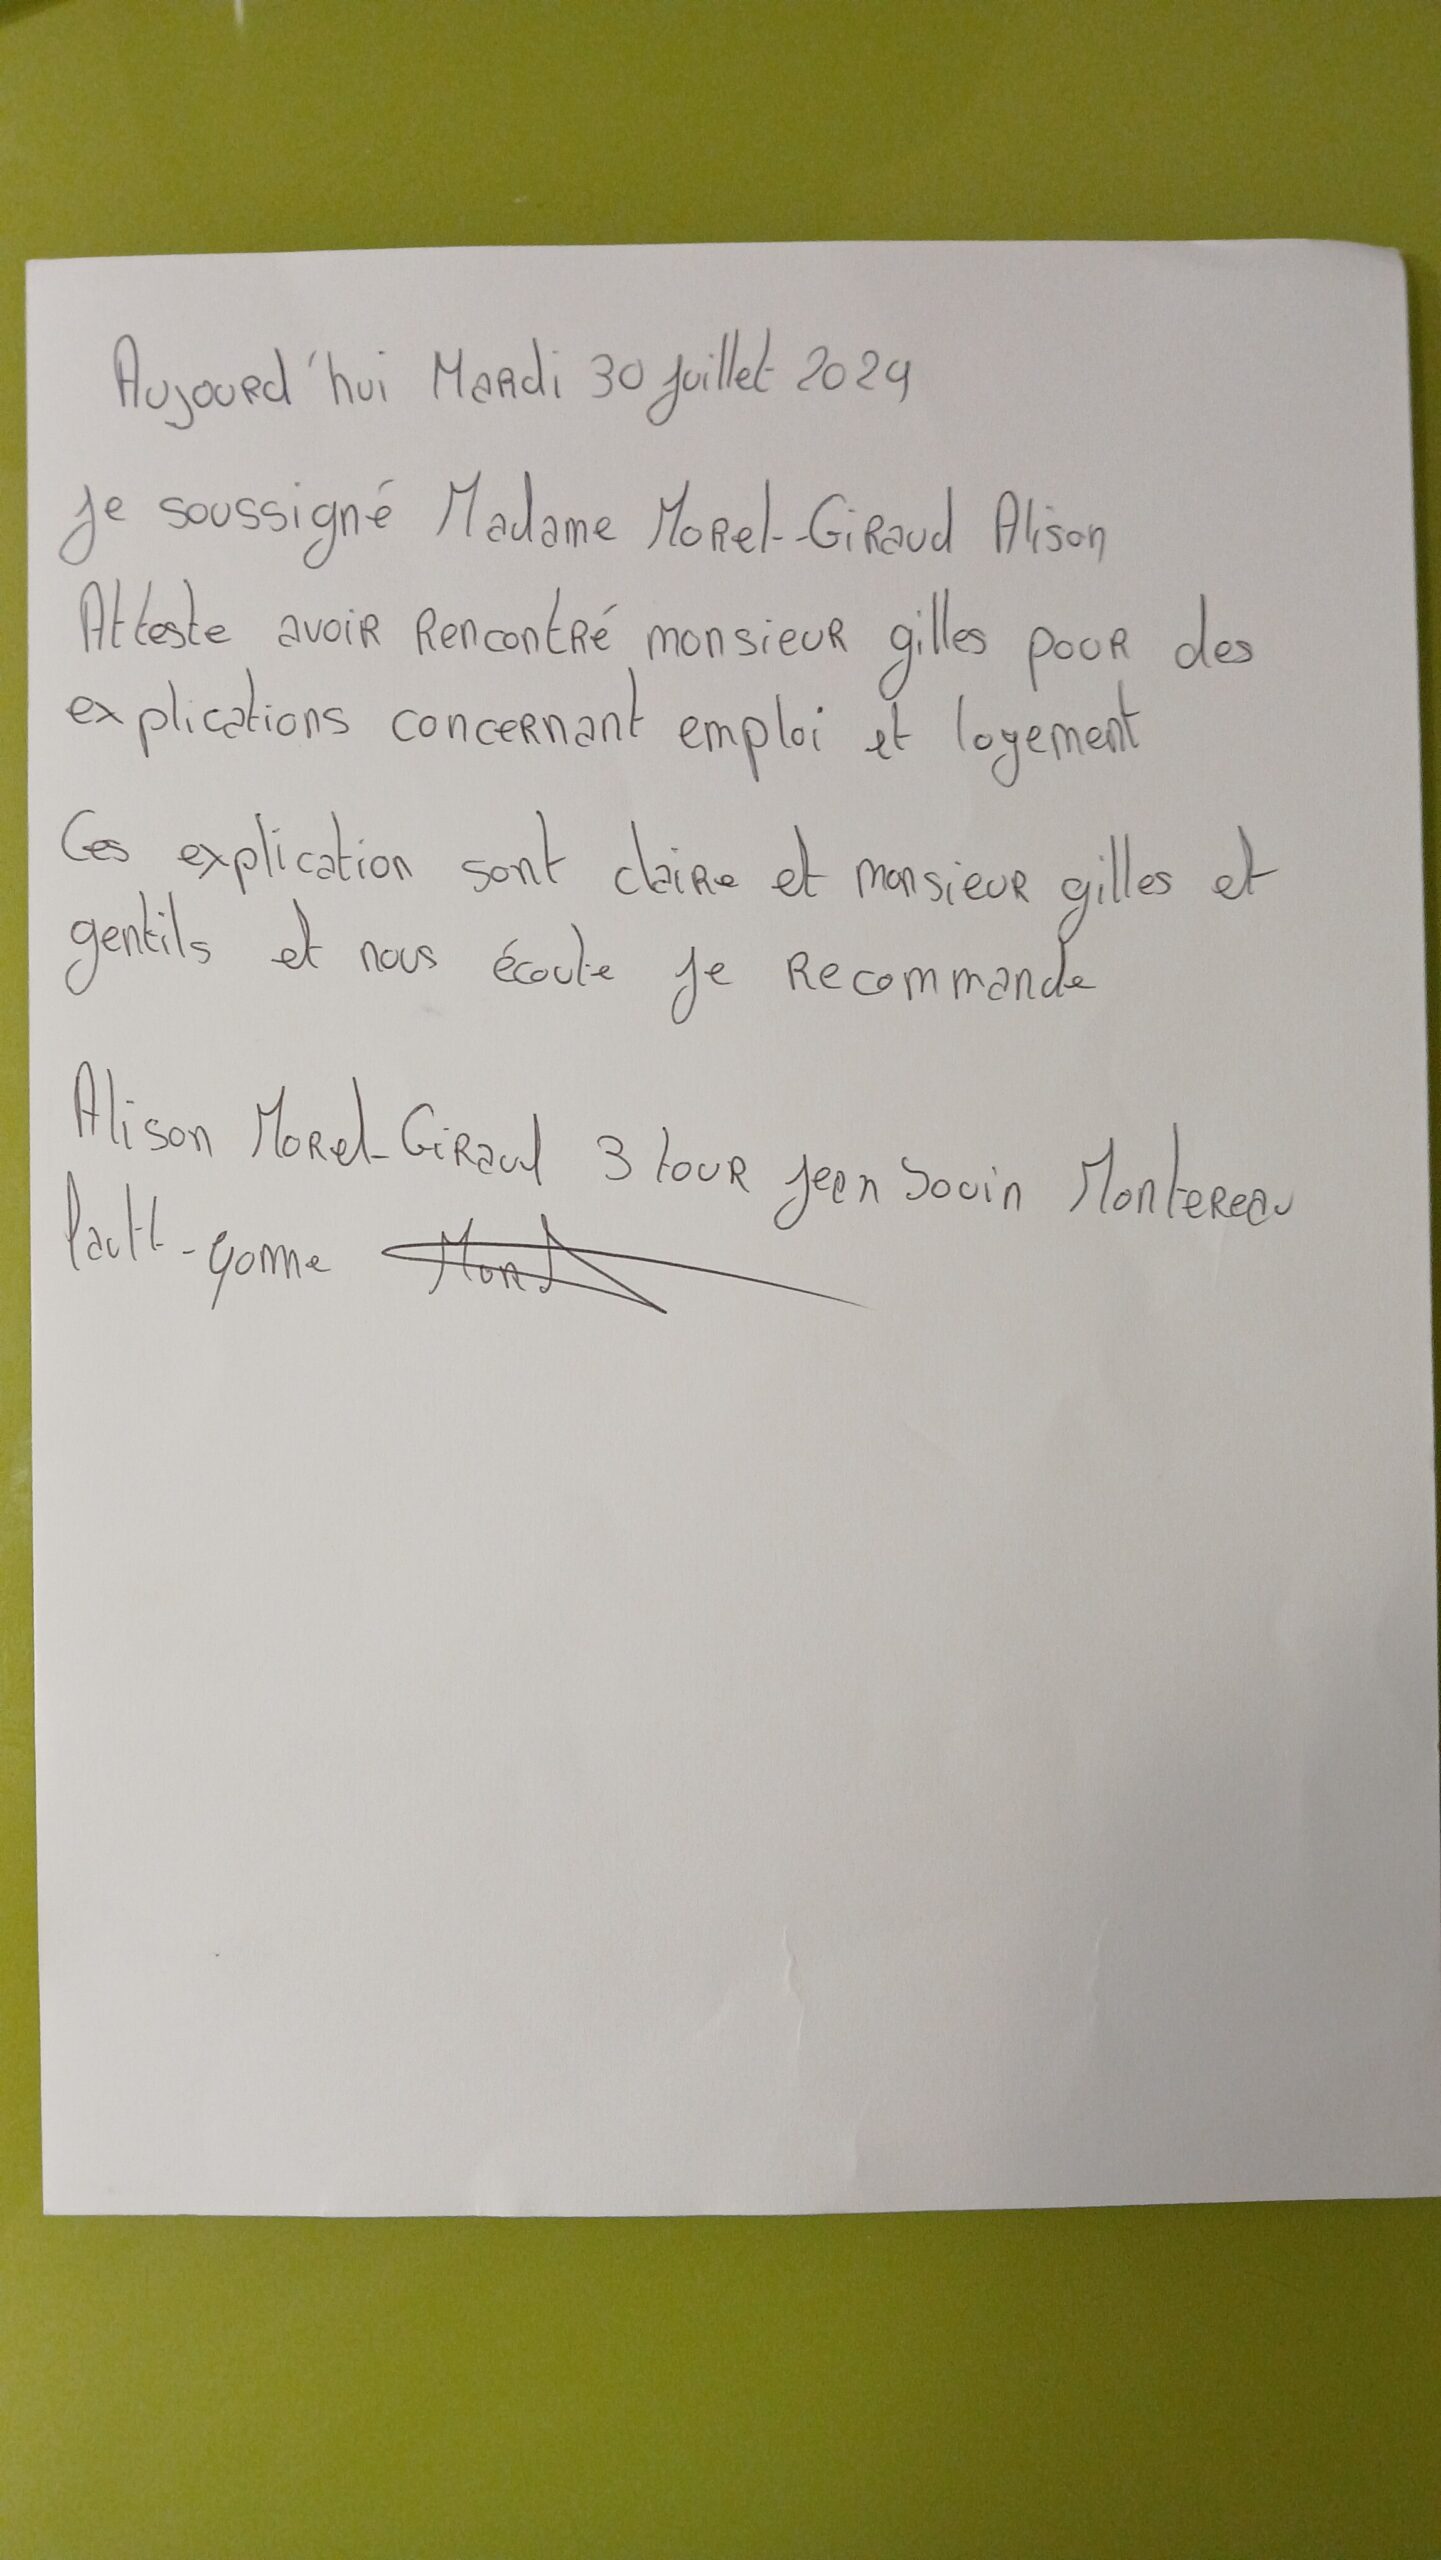 Aujourd'hui Mardi 30 juillet 2024
je soussigné Madame Morel-Giraud Alison
Atteste avoir rencontré monsieur gilles pour des
explications concernant emploi et logement
Ces explication sont claire et monsieur gilles et
gentils et nous écoute je recommande
Alison Morel-Giraud 3 tour jean Montereau